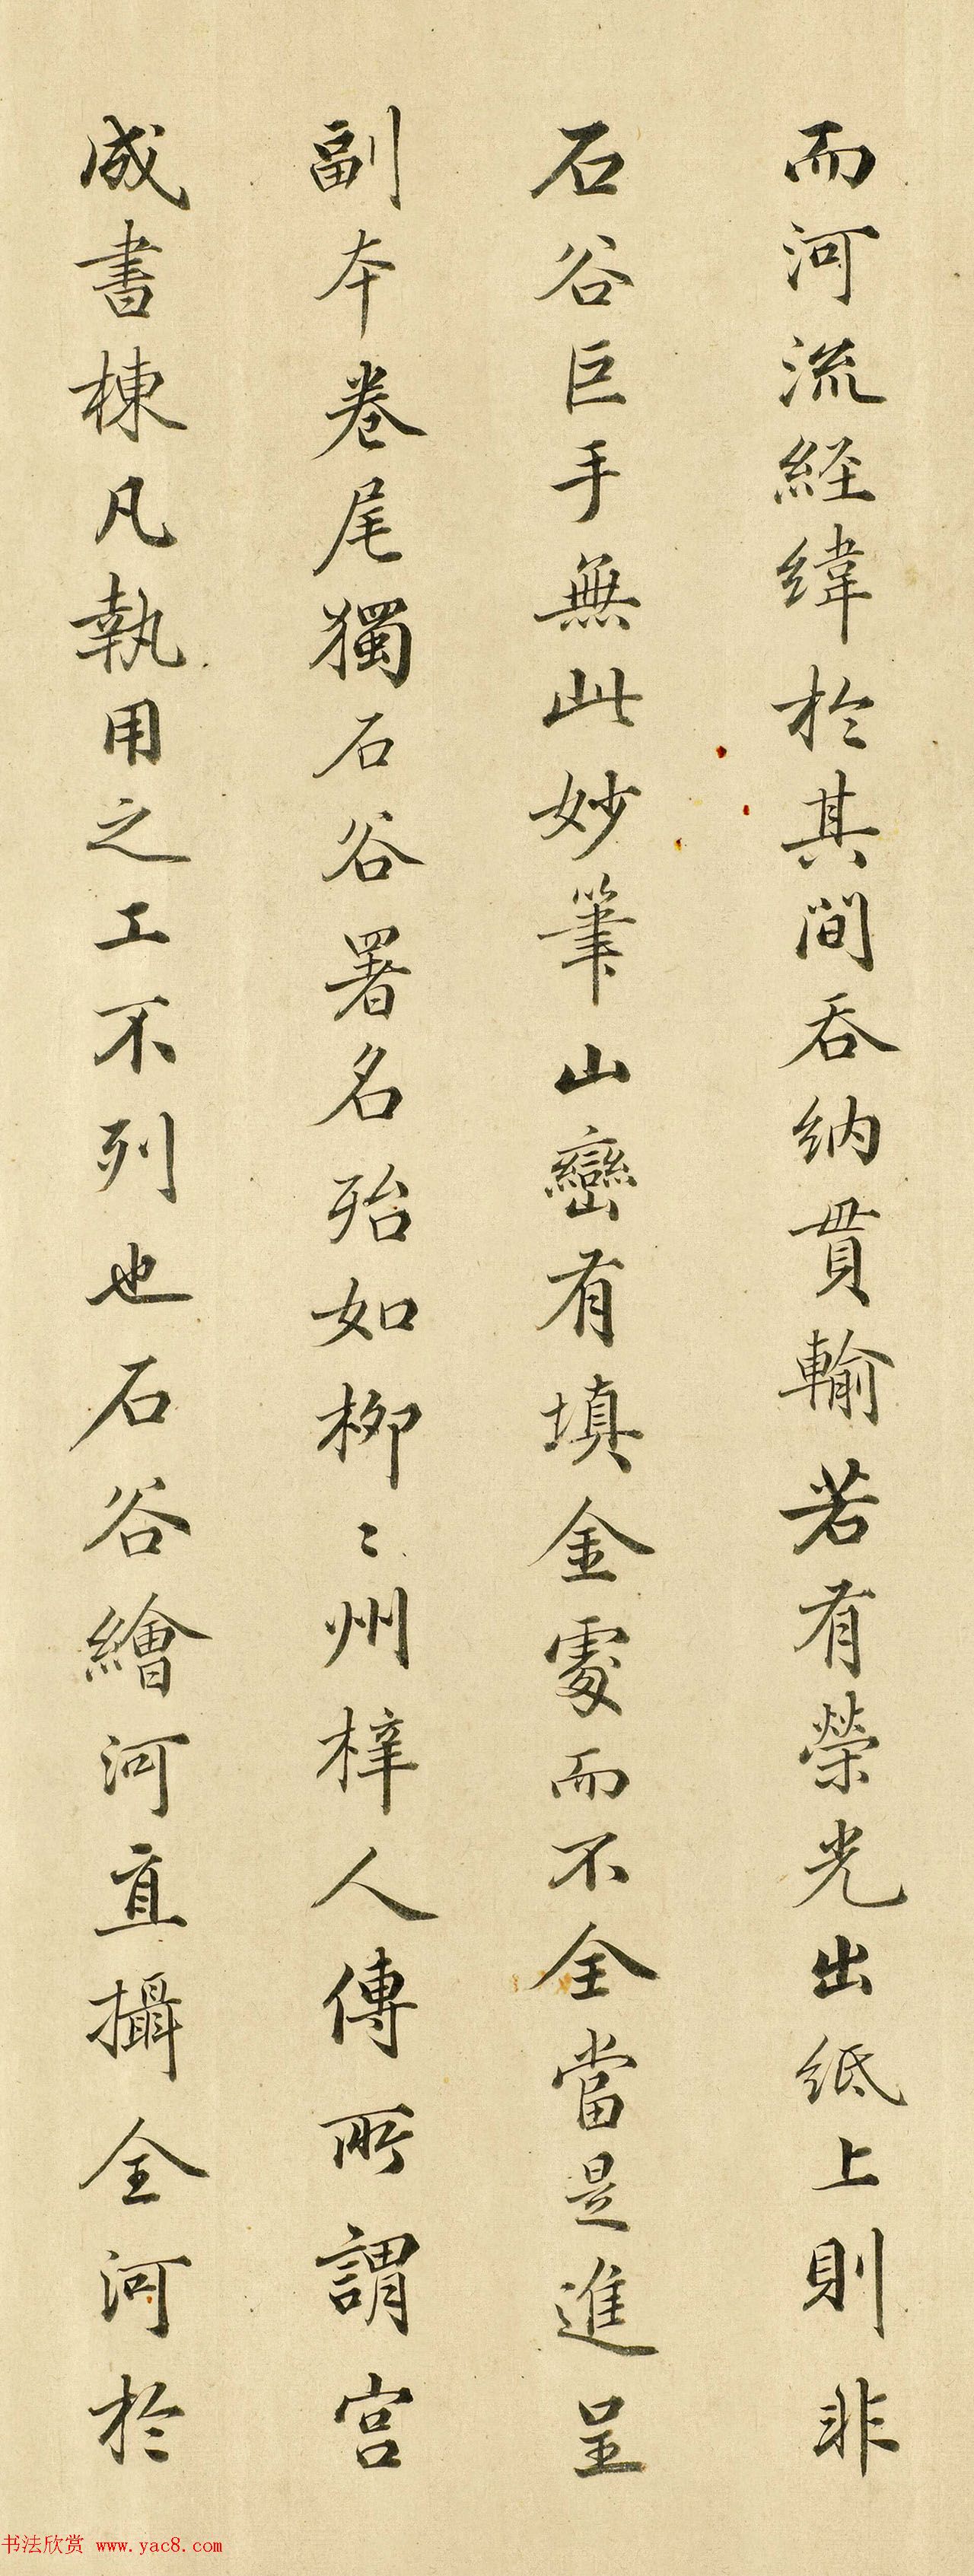 而河流経緯於其間吞納貫輸若有榮光出紙上則非
石谷巨手無此妙筆山巒有填金處而不全當是進呈
副本卷尾獨石谷署名殆如柳〻州梓人傳所謂宮
成書棟凡執用之工不列也石谷繪河直攝全河於
书法欣赏 www.yac8.com